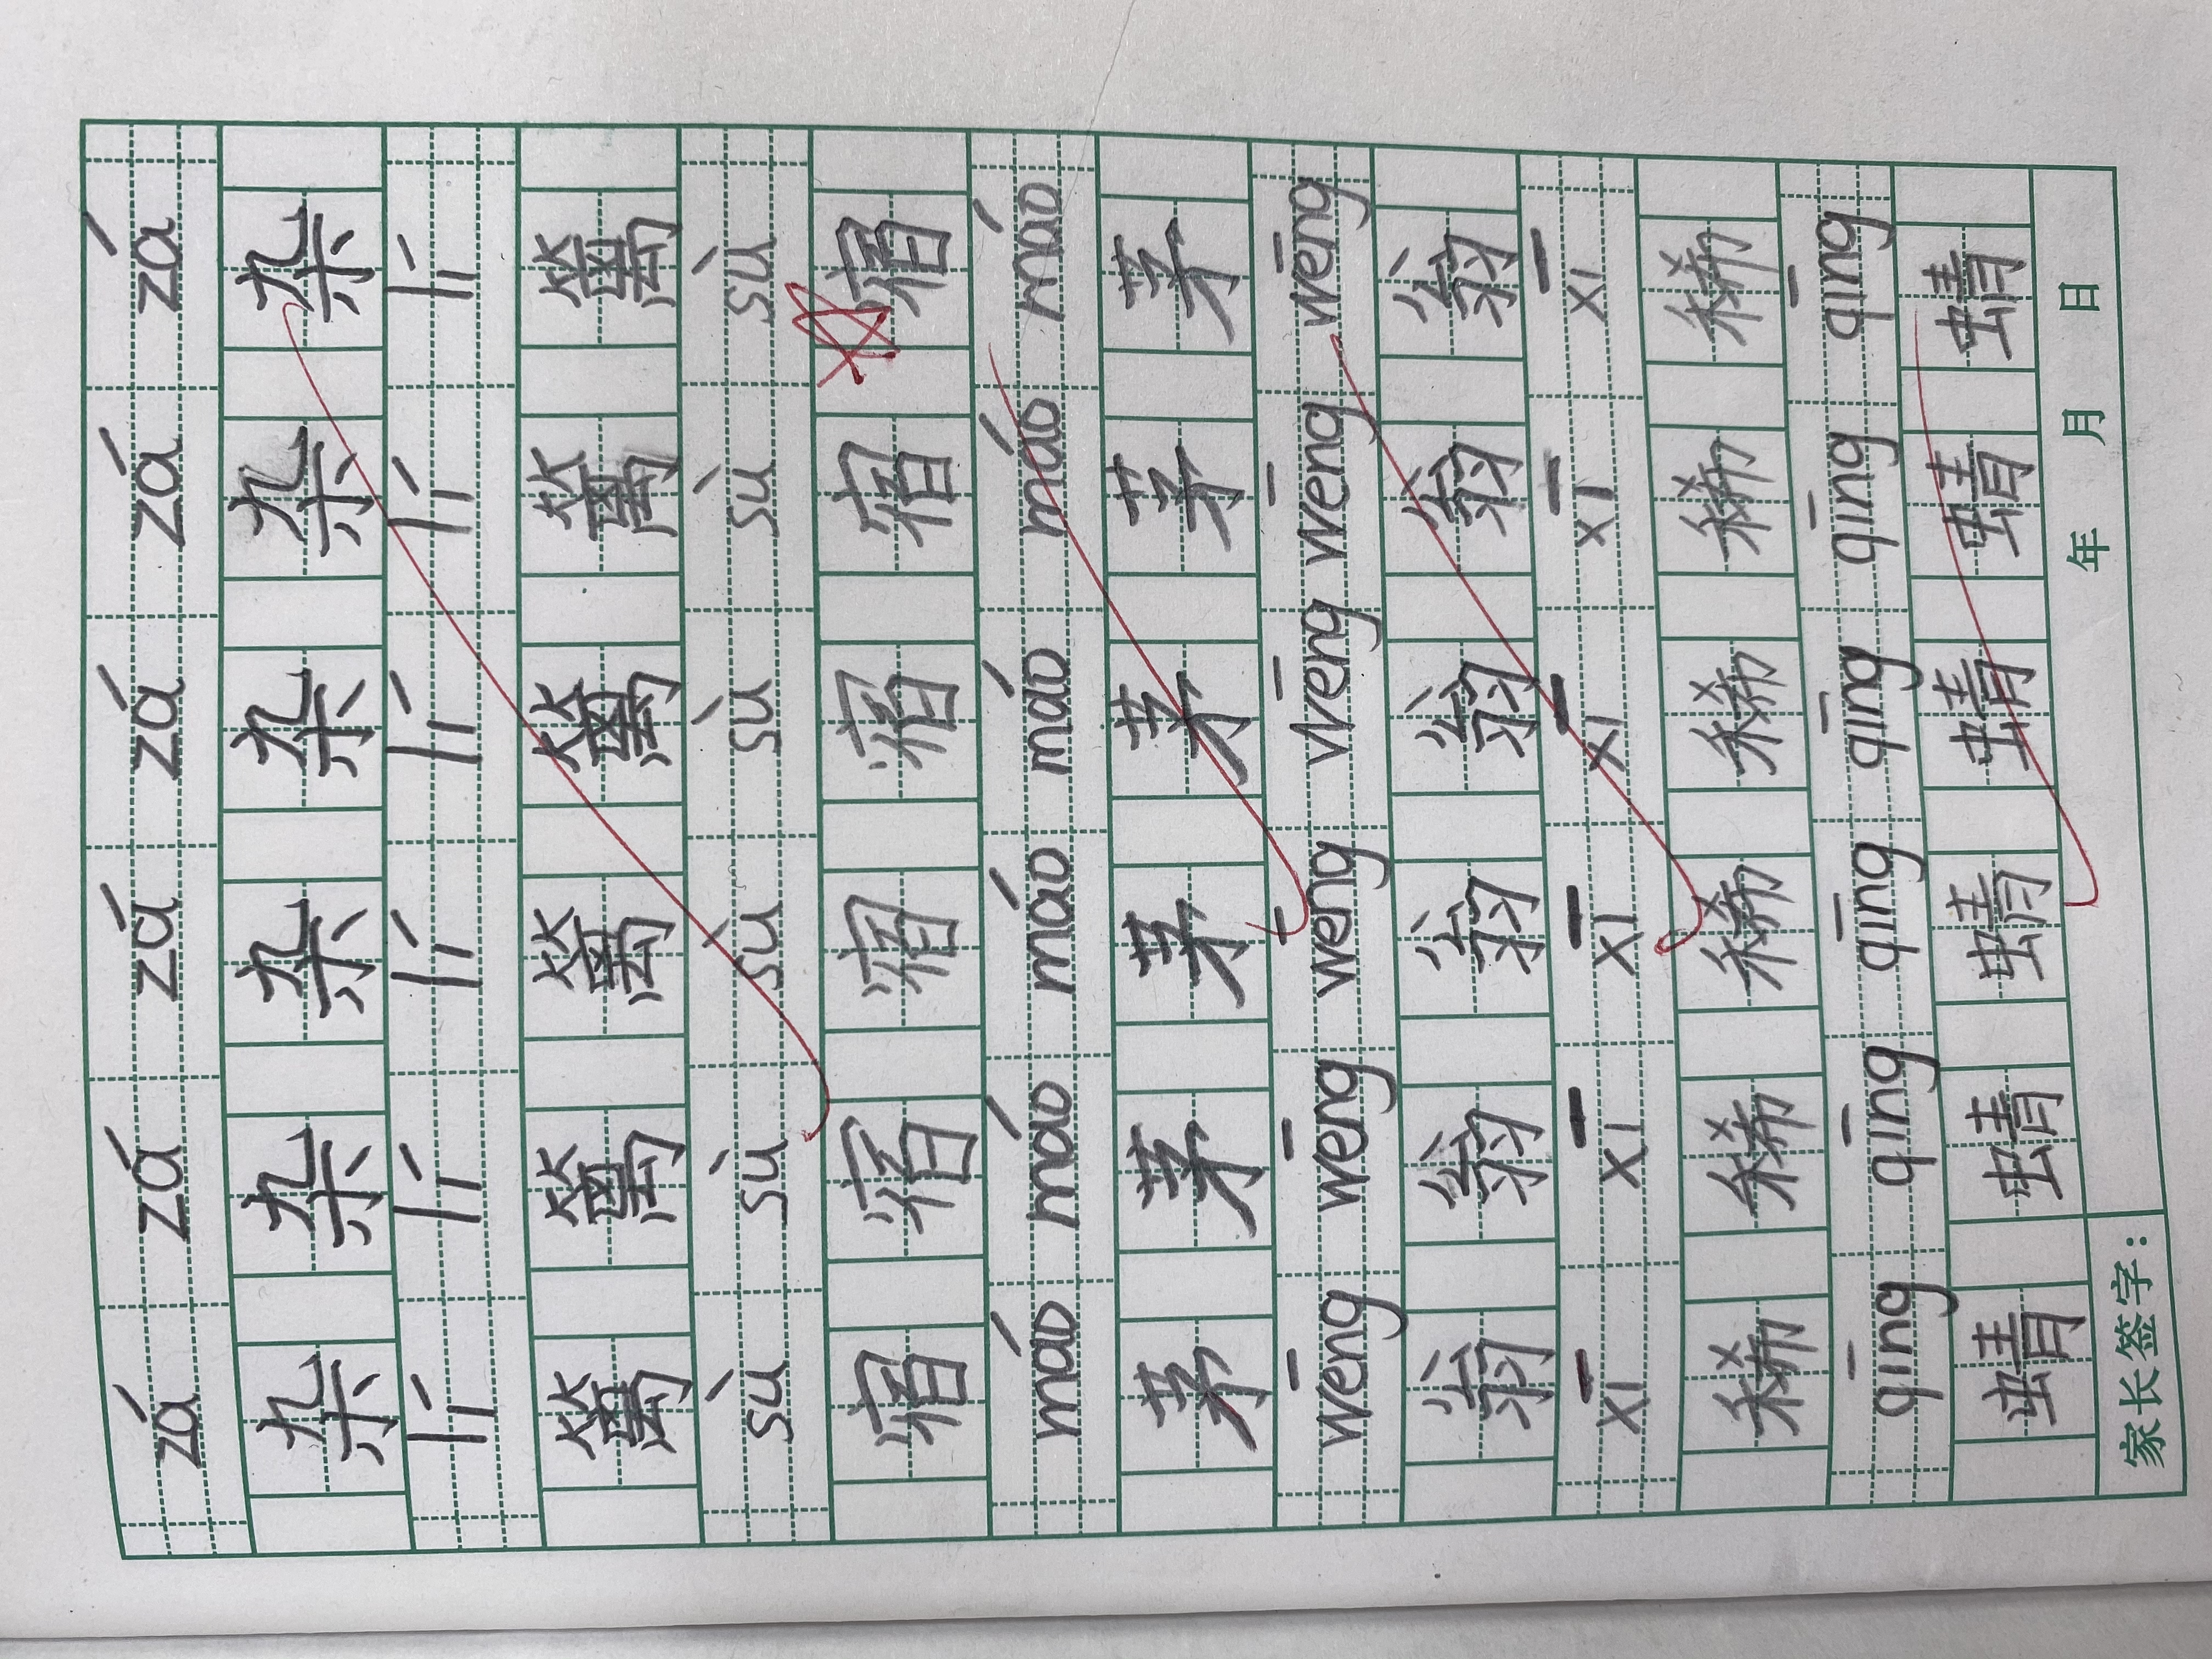 zá zá zá zá zá zá
杂 杂 杂 杂 杂 杂
lí lí lí lí lí lí
篱 篱 篱 篱 篱 篱
sù sù sù sù sù sù
宿 宿 宿 宿 宿 宿
máo máo máo máo máo máo
茅 茅 茅 茅 茅 茅
wēng wēng wēng wēng wēng wēng
翁 翁 翁 翁 翁 翁
xī xī xī xī xī xī
稀 稀 稀 稀 稀 稀
qīng qīng qīng qīng qīng qīng
蜻 蜻 蜻 蜻 蜻 蜻
家长签字： 年 月 日